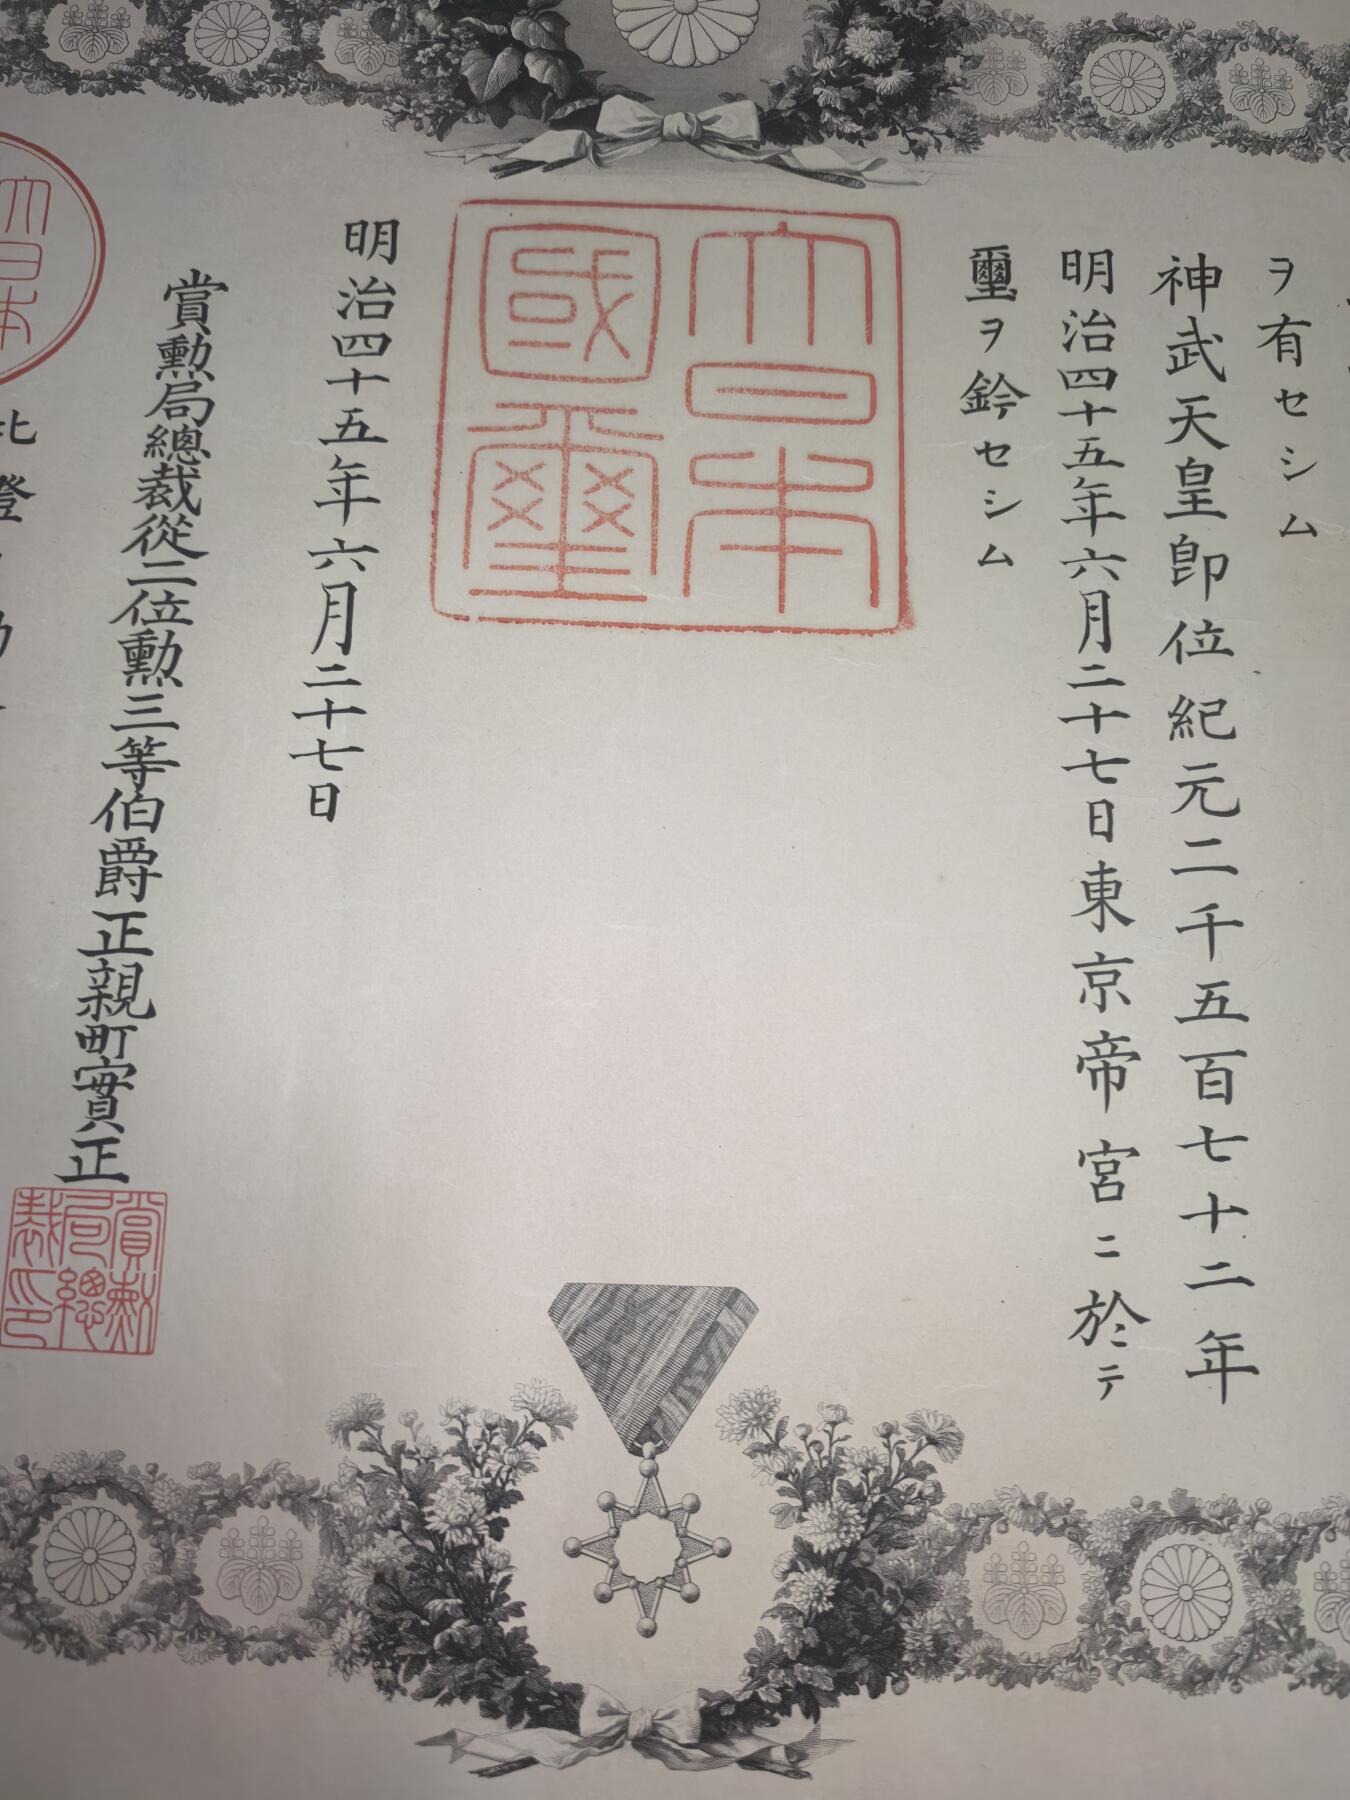 ヲ有セシム
神武天皇卽位紀元二千五百七十二年
明治四十五年六月二十七日東京帝宮ニ於テ
璽ヲ鈐セシム
大日本國璽
明治四十五年六月二十七日
賞勲局總裁從二位勲三等伯爵正親町實正
賞勲局總裁印
大日本
此證